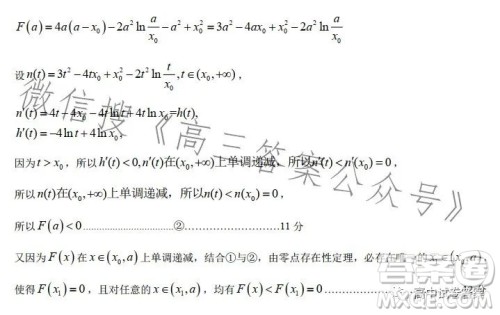 F(a)=4a(a-x₀)-2a²ln(a/x₀)-a²+x₀²=3a²-4ax₀+x₀²-2a²ln(a/x₀)
设n(t)=3t²-4tx₀+x₀²-2t²ln(t/x₀),t∈(x₀,+∞)，
n'(t)=4t-4x₀-4tlnt+4tlnx₀=h(t),
h'(t)=-4lnt+4lnx₀,
因为t>x₀，所以h'(t)<0,n'(t)在(x₀,+∞)上单调递减，所以n'(t)<n'(x₀)=0，
所以n(t)在(x₀,+∞)上单调递减，所以n(t)<n(x₀)=0，
所以F(a)<0……………………②……………………11分
又因为F(x)在x∈(x₀,a)上单调递减，结合①与②，由零点存在性定理，必存在唯一的x₁∈(x₀,a)，
使得F(x₁)=0，且对任意的x∈(x₁,a)，均有F(x)<F(x₁)=0……………
微信搜《高三答案公众号》
高中试卷答案
答案圈
MXQE.COM